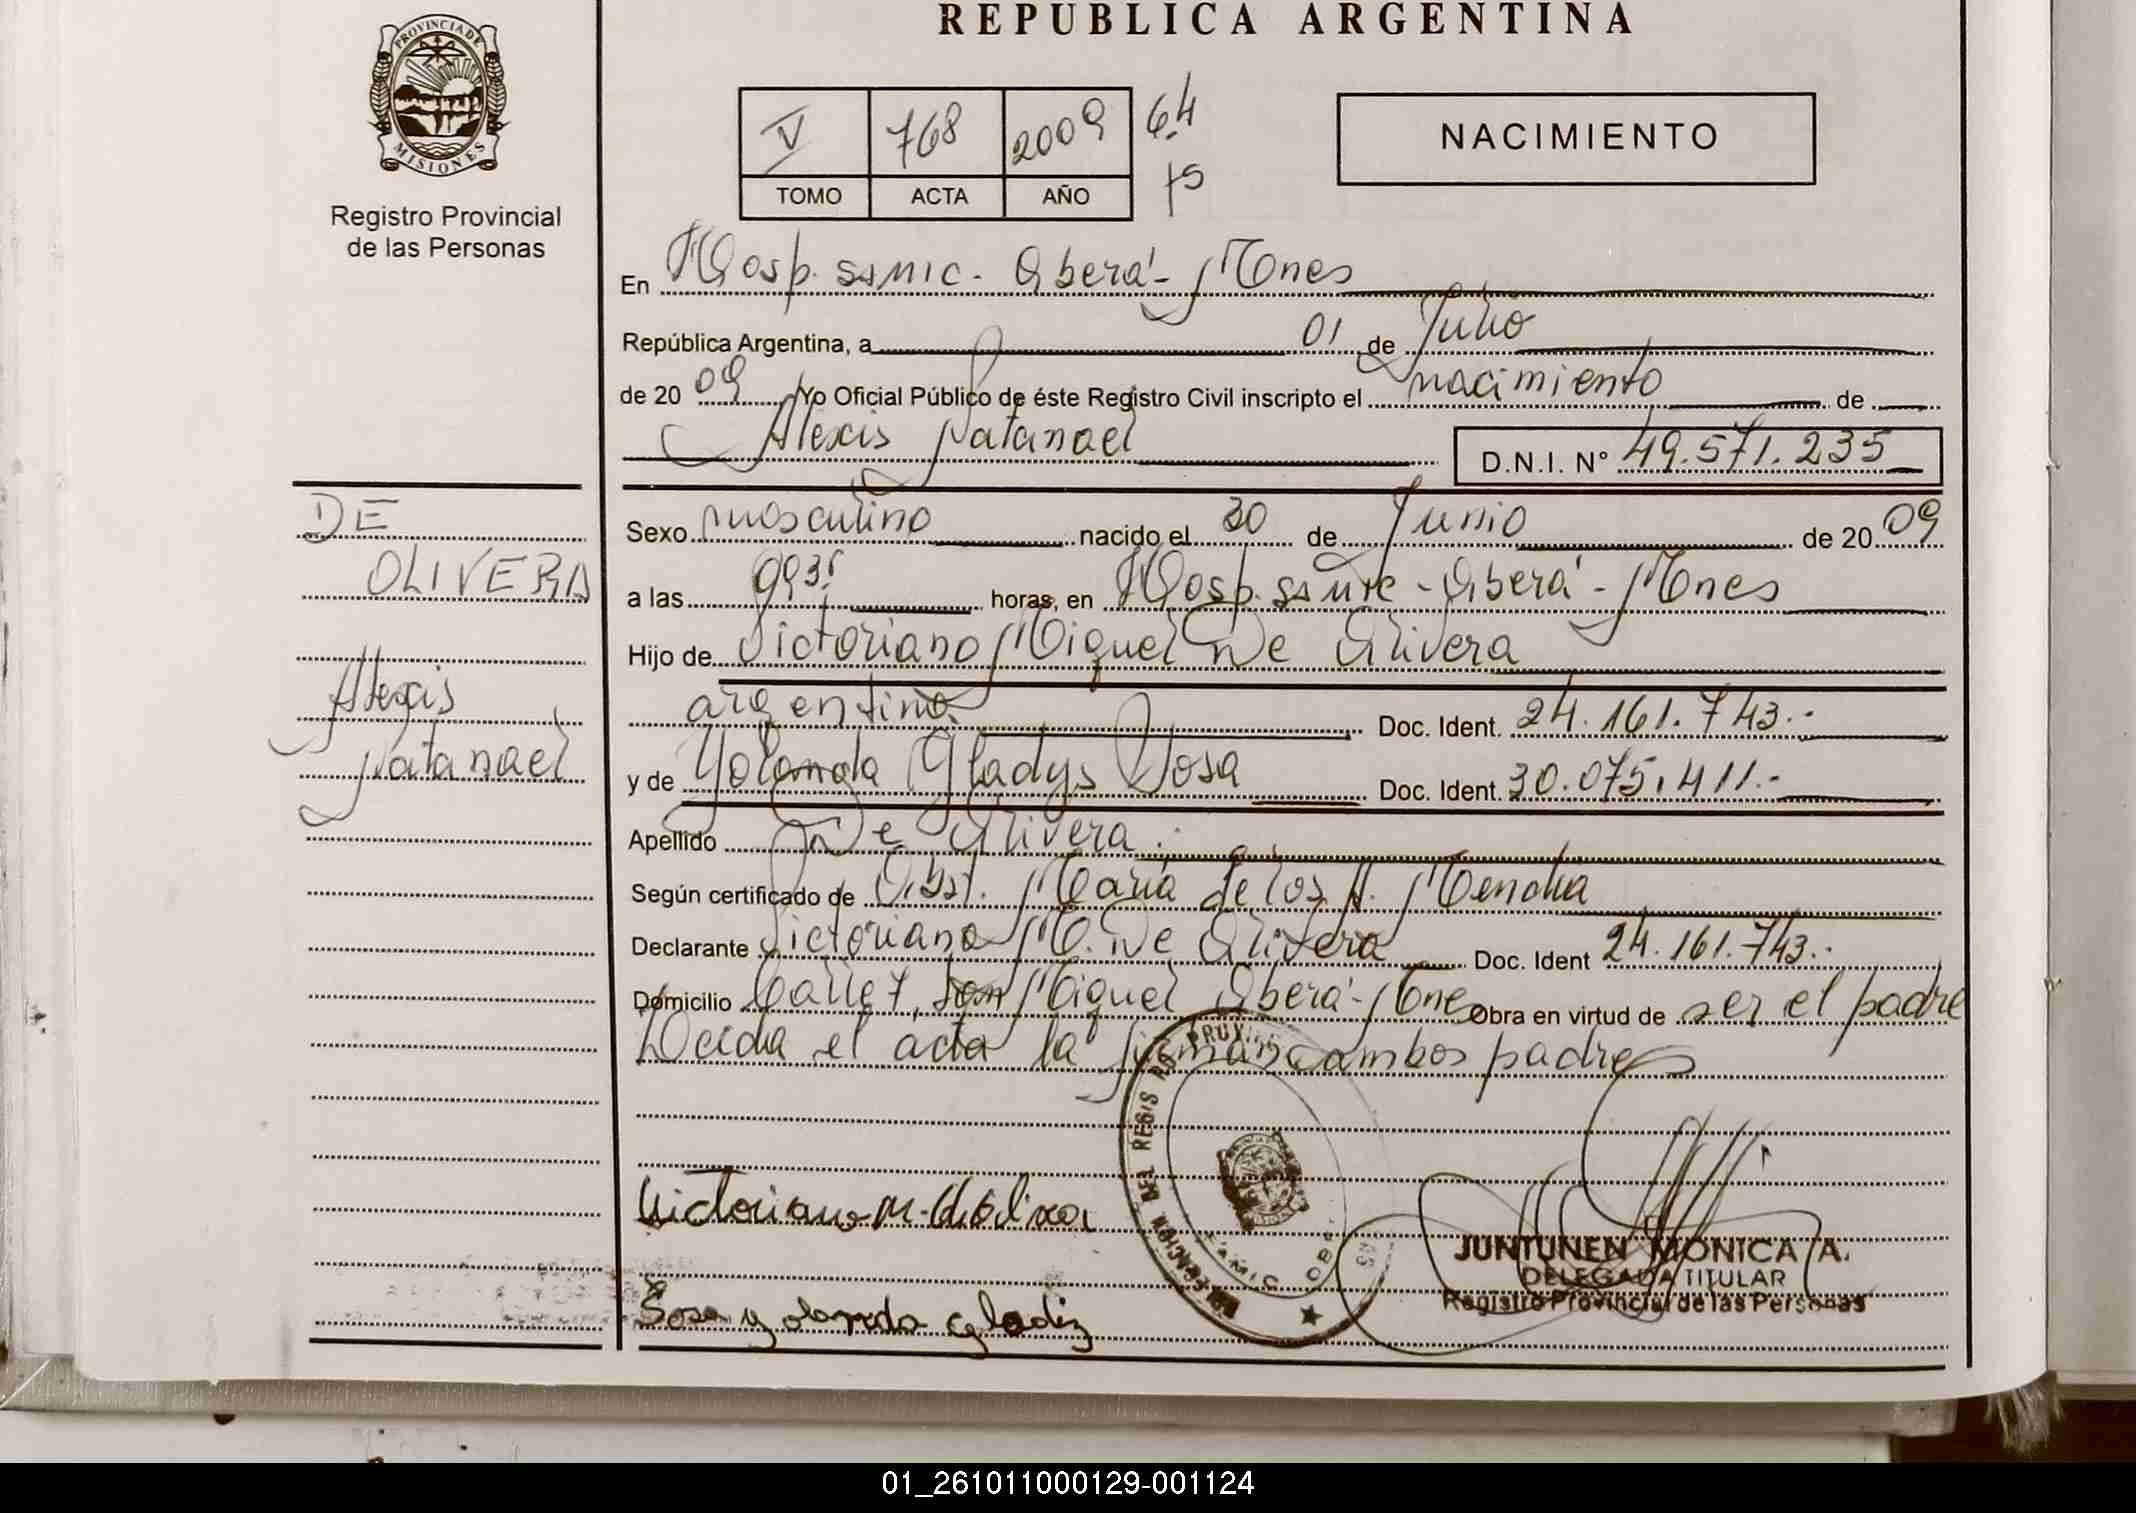 REPUBLICA ARGENTINA
PROVINCIA DE
MISIONES
Registro Provincial
de las Personas
V 768 2009 64
TOMO ACTA AÑO
75
NACIMIENTO
En Hosp. SAMIC - Oberá - Mnes
República Argentina, a 01 de Julio
de 20 09 Yo Oficial Público de éste Registro Civil inscripto el nacimiento de
Alexis Natanael D.N.I. N° 49.571.235
DE
OLIVERA
Alexis
Natanael
Sexo masculino nacido el 30 de Junio de 20 09
a las 0935 horas, en Hosp. SAMIC - Oberá - Mnes
Hijo de Victoriano Miguel De Olivera
argentino. Doc. Ident. 24.161.743.-
y de Yolanda Gladys Sosa Doc. Ident. 30.075.411.-
Apellido De Olivera.
Según certificado de Obst. María de los A.
Declarante Victoriano M. De Olivera Doc. Ident 24.161.743.-
Domicilio Calle 7, San Miguel Oberá - Mnes Obra en virtud de ser el padre
Leida el acta la firman ambos padres
Victoriano M.
Sosa yolanda gladiz
JUNTUNEN MONICA A.
DELEGADA TITULAR
Registro Provincial de las Personas
01_261011000129-001124